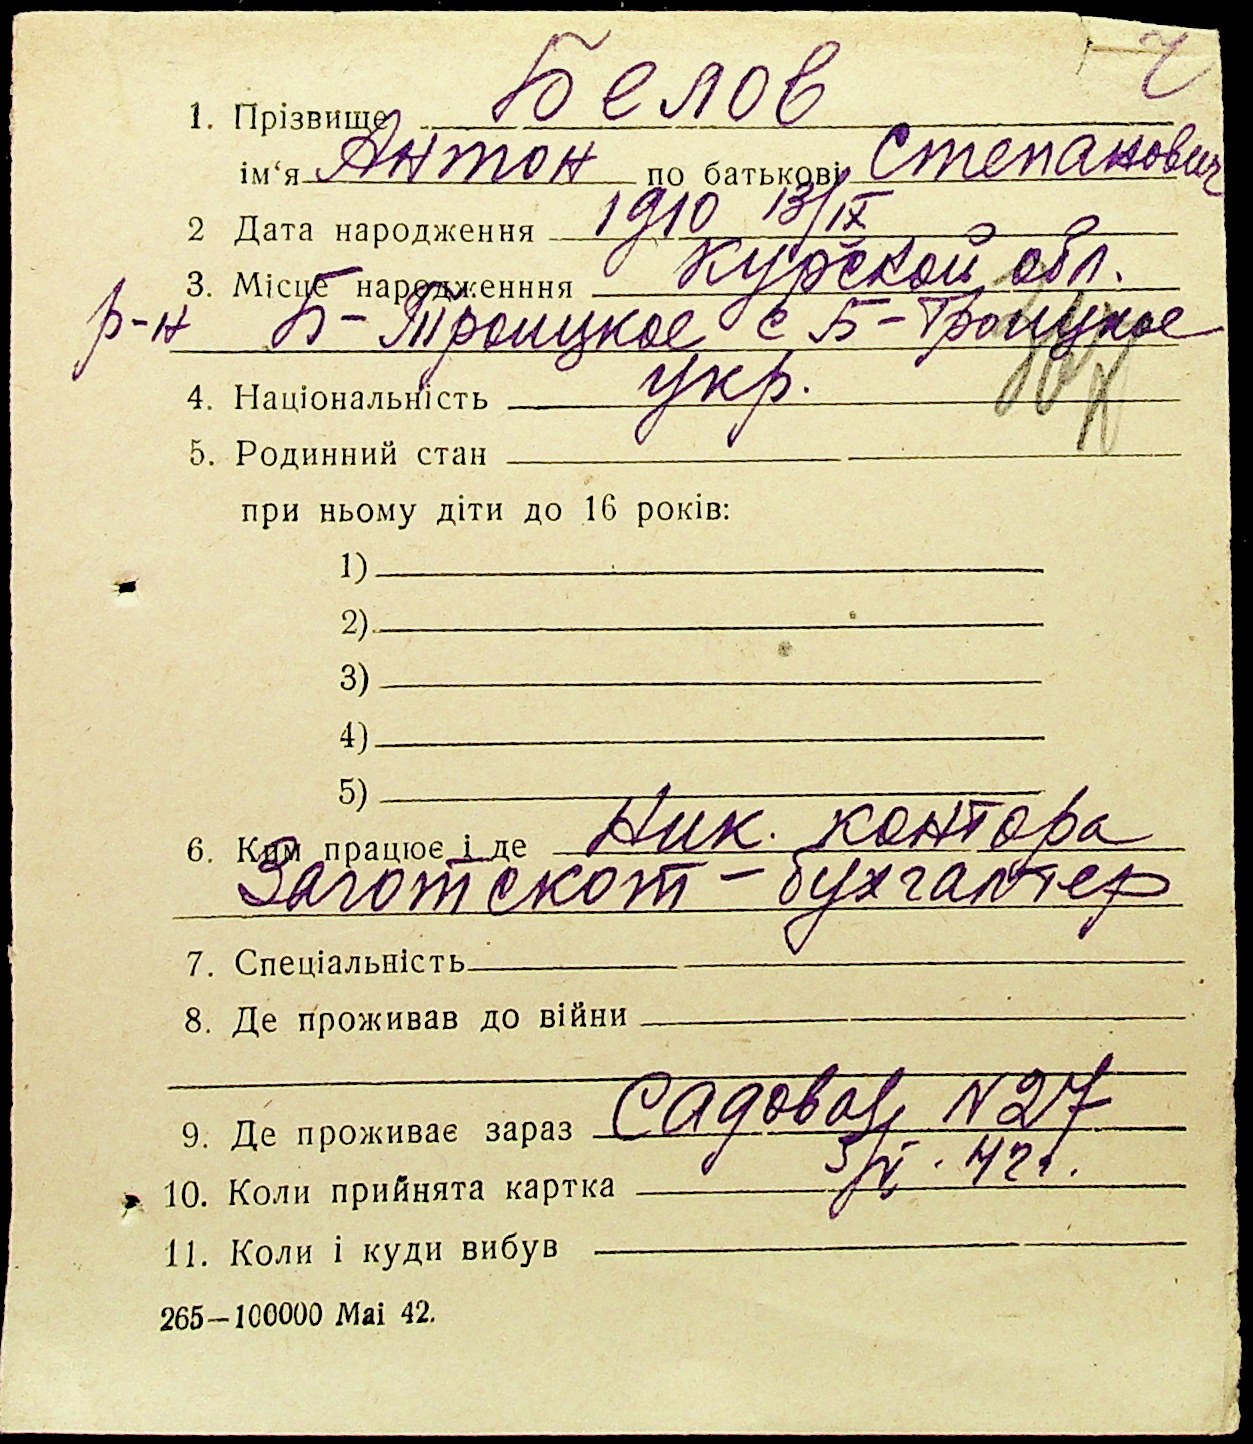 1. Прізвище Белов
ім‘я Антон по батькові Степанович
2 Дата народження 1910 13/IX
3. Місце народженння Курской обл.
р-н Б-Троицкое с Б-Троицкое
4. Національність укр.
5. Родинний стан
при ньому діти до 16 років:
1)
2)
3)
4)
5)
6. Ким працює і де Ник. контора
Заготскот - бухгалтер
7. Спеціальність
8. Де проживав до війни
9. Де проживає зараз Садовая N 27
10. Коли прийнята картка 42г.
11. Коли і куди вибув
265—100000 Mai 42.